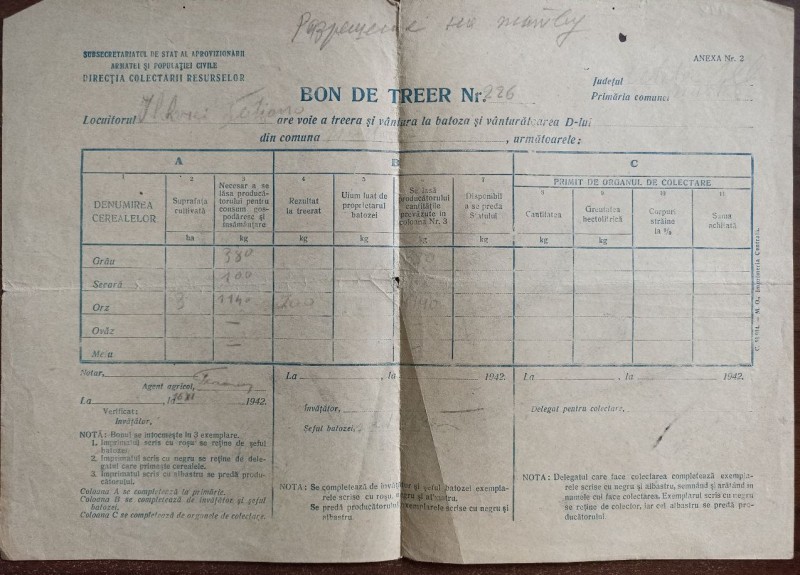 Разрешение на
SUBSECRETARIATUL DE STAT AL APROVIZIONĂRII
ARMATEI ȘI POPULAȚIEI CIVILE
DIRECȚIA COLECTĂRII RESURSELOR
ANEXA Nr. 2
Județul
Primăria comunei
BON DE TREER Nr. 226
Locuitorul are voie a treera și vântura la batoza și vânturătoarea D-lui
din comuna , următoarele;
A B C
PRIMIT DE ORGANUL DE COLECTARE
1 2 3 4 5 6 7 8 9 10 11
DENUMIREA CEREALELOR
Suprafața cultivată
Necesar a se lăsa producătorului pentru consum gospodăresc și însămânțare
Rezultat la treerat
Uium luat de proprietarul batozei
Se lasă producătorului cantitățile prevăzute în coloana Nr. 3
Disponibil a se preda Statului
Cantitatea
Greutatea hectolitrică
Corpuri străine la %
Suma achitată
ha kg kg kg kg kg kg kg
Grâu 380
Secară 100
Orz 3 1140
Ovăz —
Meiu —
Notar,
Agent agricol,
La , la 1942.
Verificat:
Învățător,
NOTĂ: Bonul se întocmește în 3 exemplare.
1. Imprimatul scris cu roșu se reține de șeful
batozei.
2. Imprimatul scris cu negru se reține de delegatul care primește cerealele.
3. Imprimatul scris cu albastru se predă producătorului.
Coloana A se completează la primărie.
Coloana B se completează de învățător și șeful
batozei.
Coloana C se completează de organele de colectare.
La , la 1942.
Învățător,
Șeful batozei,
NOTĂ: Se completează de învățător și șeful batozei exemplarele scrise cu roșu, negru și albastru.
Se predă producătorului exemplarele scrise cu negru și
albastru.
La , la 1942.
Delegat pentru colectare,
NOTA: Delegatul care face colectarea completează exemplarele scrise cu negru și albastru, semnând și arătând în
numele cui face colectarea. Exemplarul scris cu negru
se reține de colector, iar cel albastru se predă producătorului.